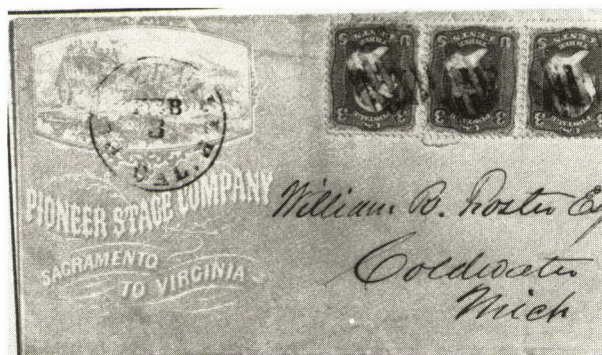 FEB
3
CAL.
PIONEER STAGE COMPANY
SACRAMENTO
TO VIRGINIA
William B. Foster Esq
Coldwater
Mich
3 3
3 3
3